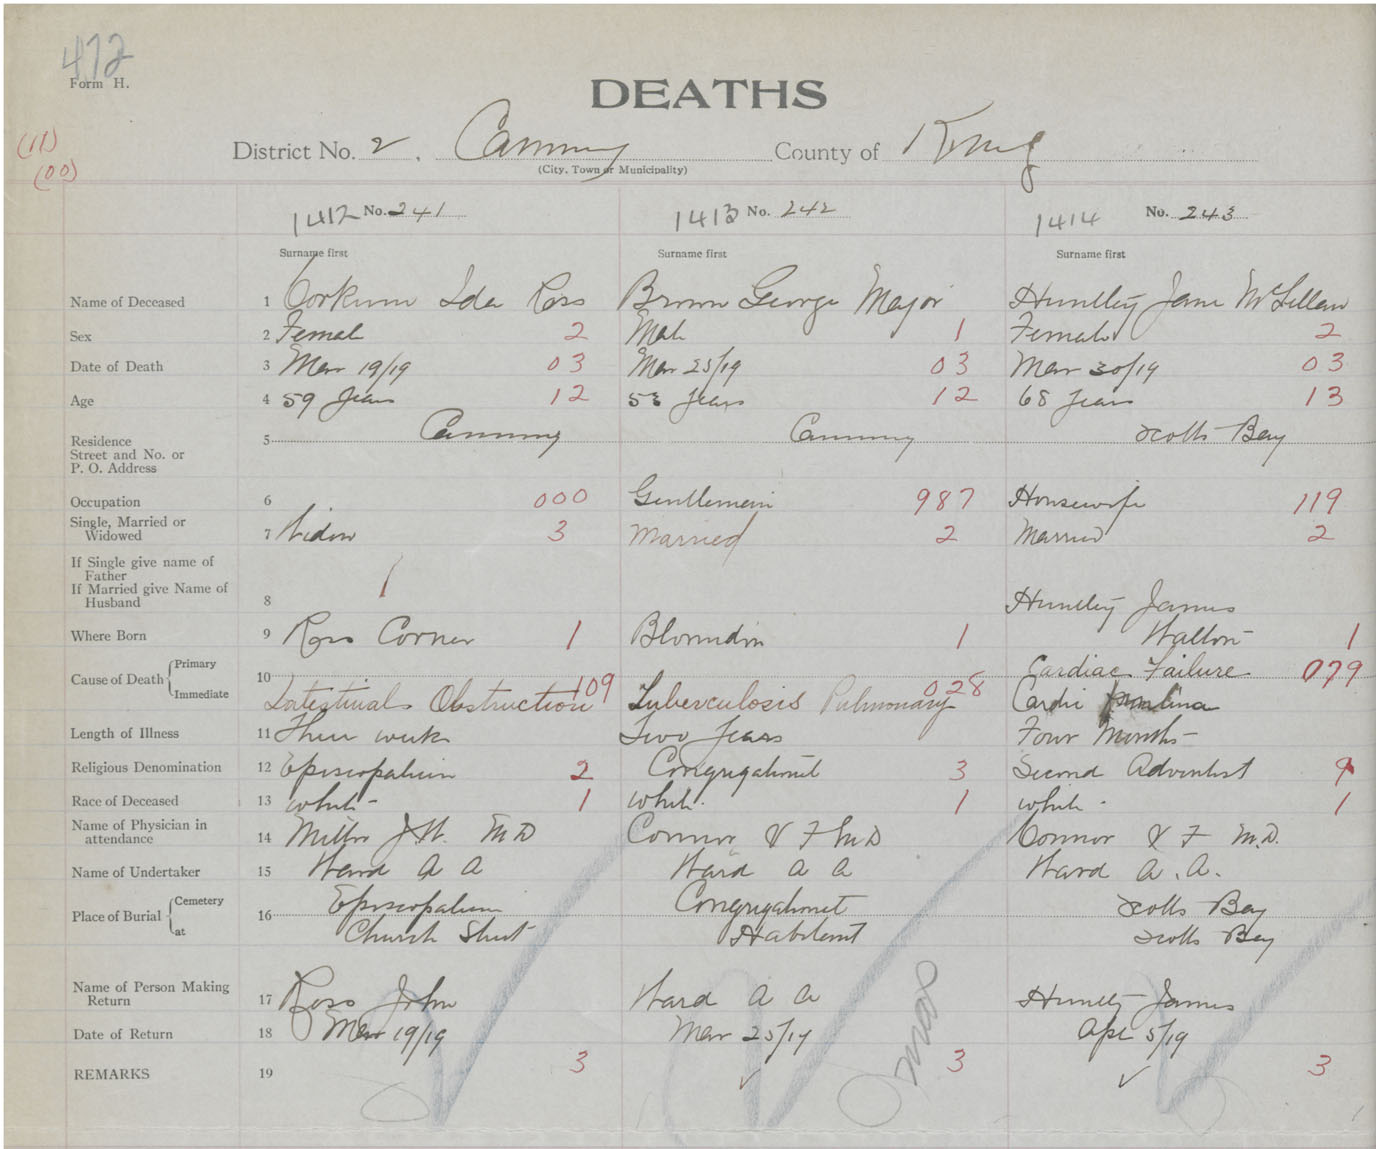 472
Form H.
DEATHS
(11)
(00)
District No. 2, Canning County of Kings
(City, Town or Municipality)
1412 No. 241 1413 No. 242 1414 No. 243
Surname first Surname first Surname first
Name of Deceased 1 Corkum Ida Ross Brown George Major Huntley Jane McLellan
Sex 2 Female 2 Male 1 Female 2
Date of Death 3 Mar 19/19 03 Mar 25/19 03 Mar 30/19 03
Age 4 59 Years 12 53 Years 12 68 Years 13
Residence 5 Canning Canning Scotts Bay
Street and No. or
P. O. Address
Occupation 6 000 Gentleman 987 Housewife 119
Single, Married or
Widowed 7 Widow 3 Married 2 Married 2
If Single give name of
Father
If Married give Name of
Husband 8 Huntley James
Where Born 9 Ross Corner 1 Blomidon 1 Walton 1
Cause of Death Primary 10 Cardiac Failure 079
Immediate Intestinal Obstruction 109 Tuberculosis Pulmonary 028 Cardi
Length of Illness 11 Three weeks Two Years Four Months
Religious Denomination 12 Episcopalian 2 Congregationist 3 Second Adventist 9
Race of Deceased 13 white 1 white 1 white 1
Name of Physician in
attendance 14 Miller J.W. M D Connor F M D Connor F M.D.
Name of Undertaker 15 Ward A A Ward A A Ward A. A.
Place of Burial Cemetery 16 Episcopalian Congregationist Scotts Bay
at Church Street Habitant Scotts Bay
Name of Person Making
Return 17 Ross John Ward A A Huntley James
Date of Return 18 Mar 19/19 Mar 25/19 Apl 5/19
REMARKS 19 3 3 3